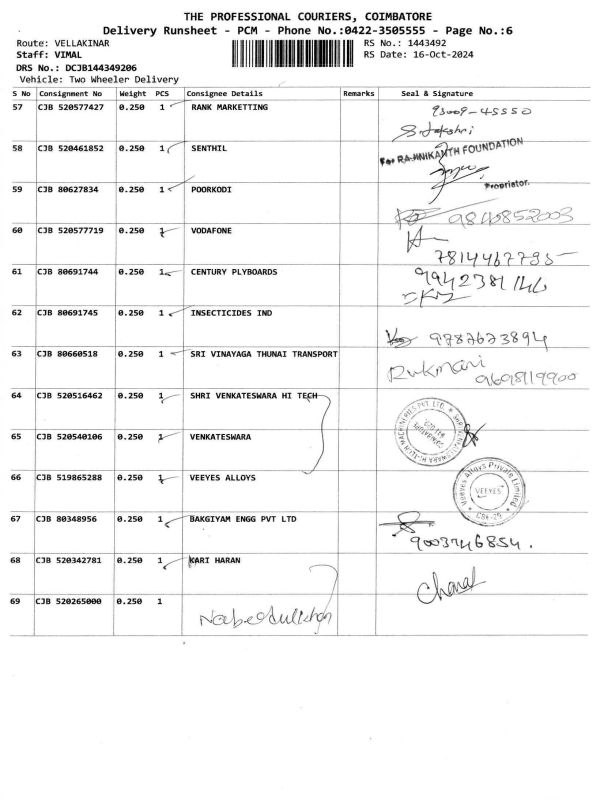 THE PROFESSIONAL COURIERS, COIMBATORE
Delivery Runsheet - PCM - Phone No.:0422-3505555 - Page No.:6
Route: VELLAKINAR RS No.: 1443492
Staff: VIMAL RS Date: 16-Oct-2024
DRS No.: DCJB144349206
Vehicle: Two Wheeler Delivery
S No Consignment No Weight PCS Consignee Details Remarks Seal & Signature
57 CJB 520577427 0.250 1 RANK MARKETTING 93009-45550
58 CJB 520461852 0.250 1 SENTHIL For RAJINIKANTH FOUNDATION
Proprietor.
59 CJB 80627834 0.250 1 POORKODI 9846852003
60 CJB 520577719 0.250 1 VODAFONE
7814467795
61 CJB 80691744 0.250 1 CENTURY PLYBOARDS 9942381146
62 CJB 80691745 0.250 1 INSECTICIDES IND
9787673894
63 CJB 80660518 0.250 1 SRI VINAYAGA THUNAI TRANSPORT Rukmani
9698119900
64 CJB 520516462 0.250 1 SHRI VENKATESWARA HI TECH
65 CJB 520540106 0.250 1 VENKATESWARA
66 CJB 519865288 0.250 1 VEEYES ALLOYS Veeyes Alloys Private Limited
VEEYES
67 CJB 80348956 0.250 1 BAKGIYAM ENGG PVT LTD
9003746854.
68 CJB 520342781 0.250 1 KARI HARAN
69 CJB 520265000 0.250 1